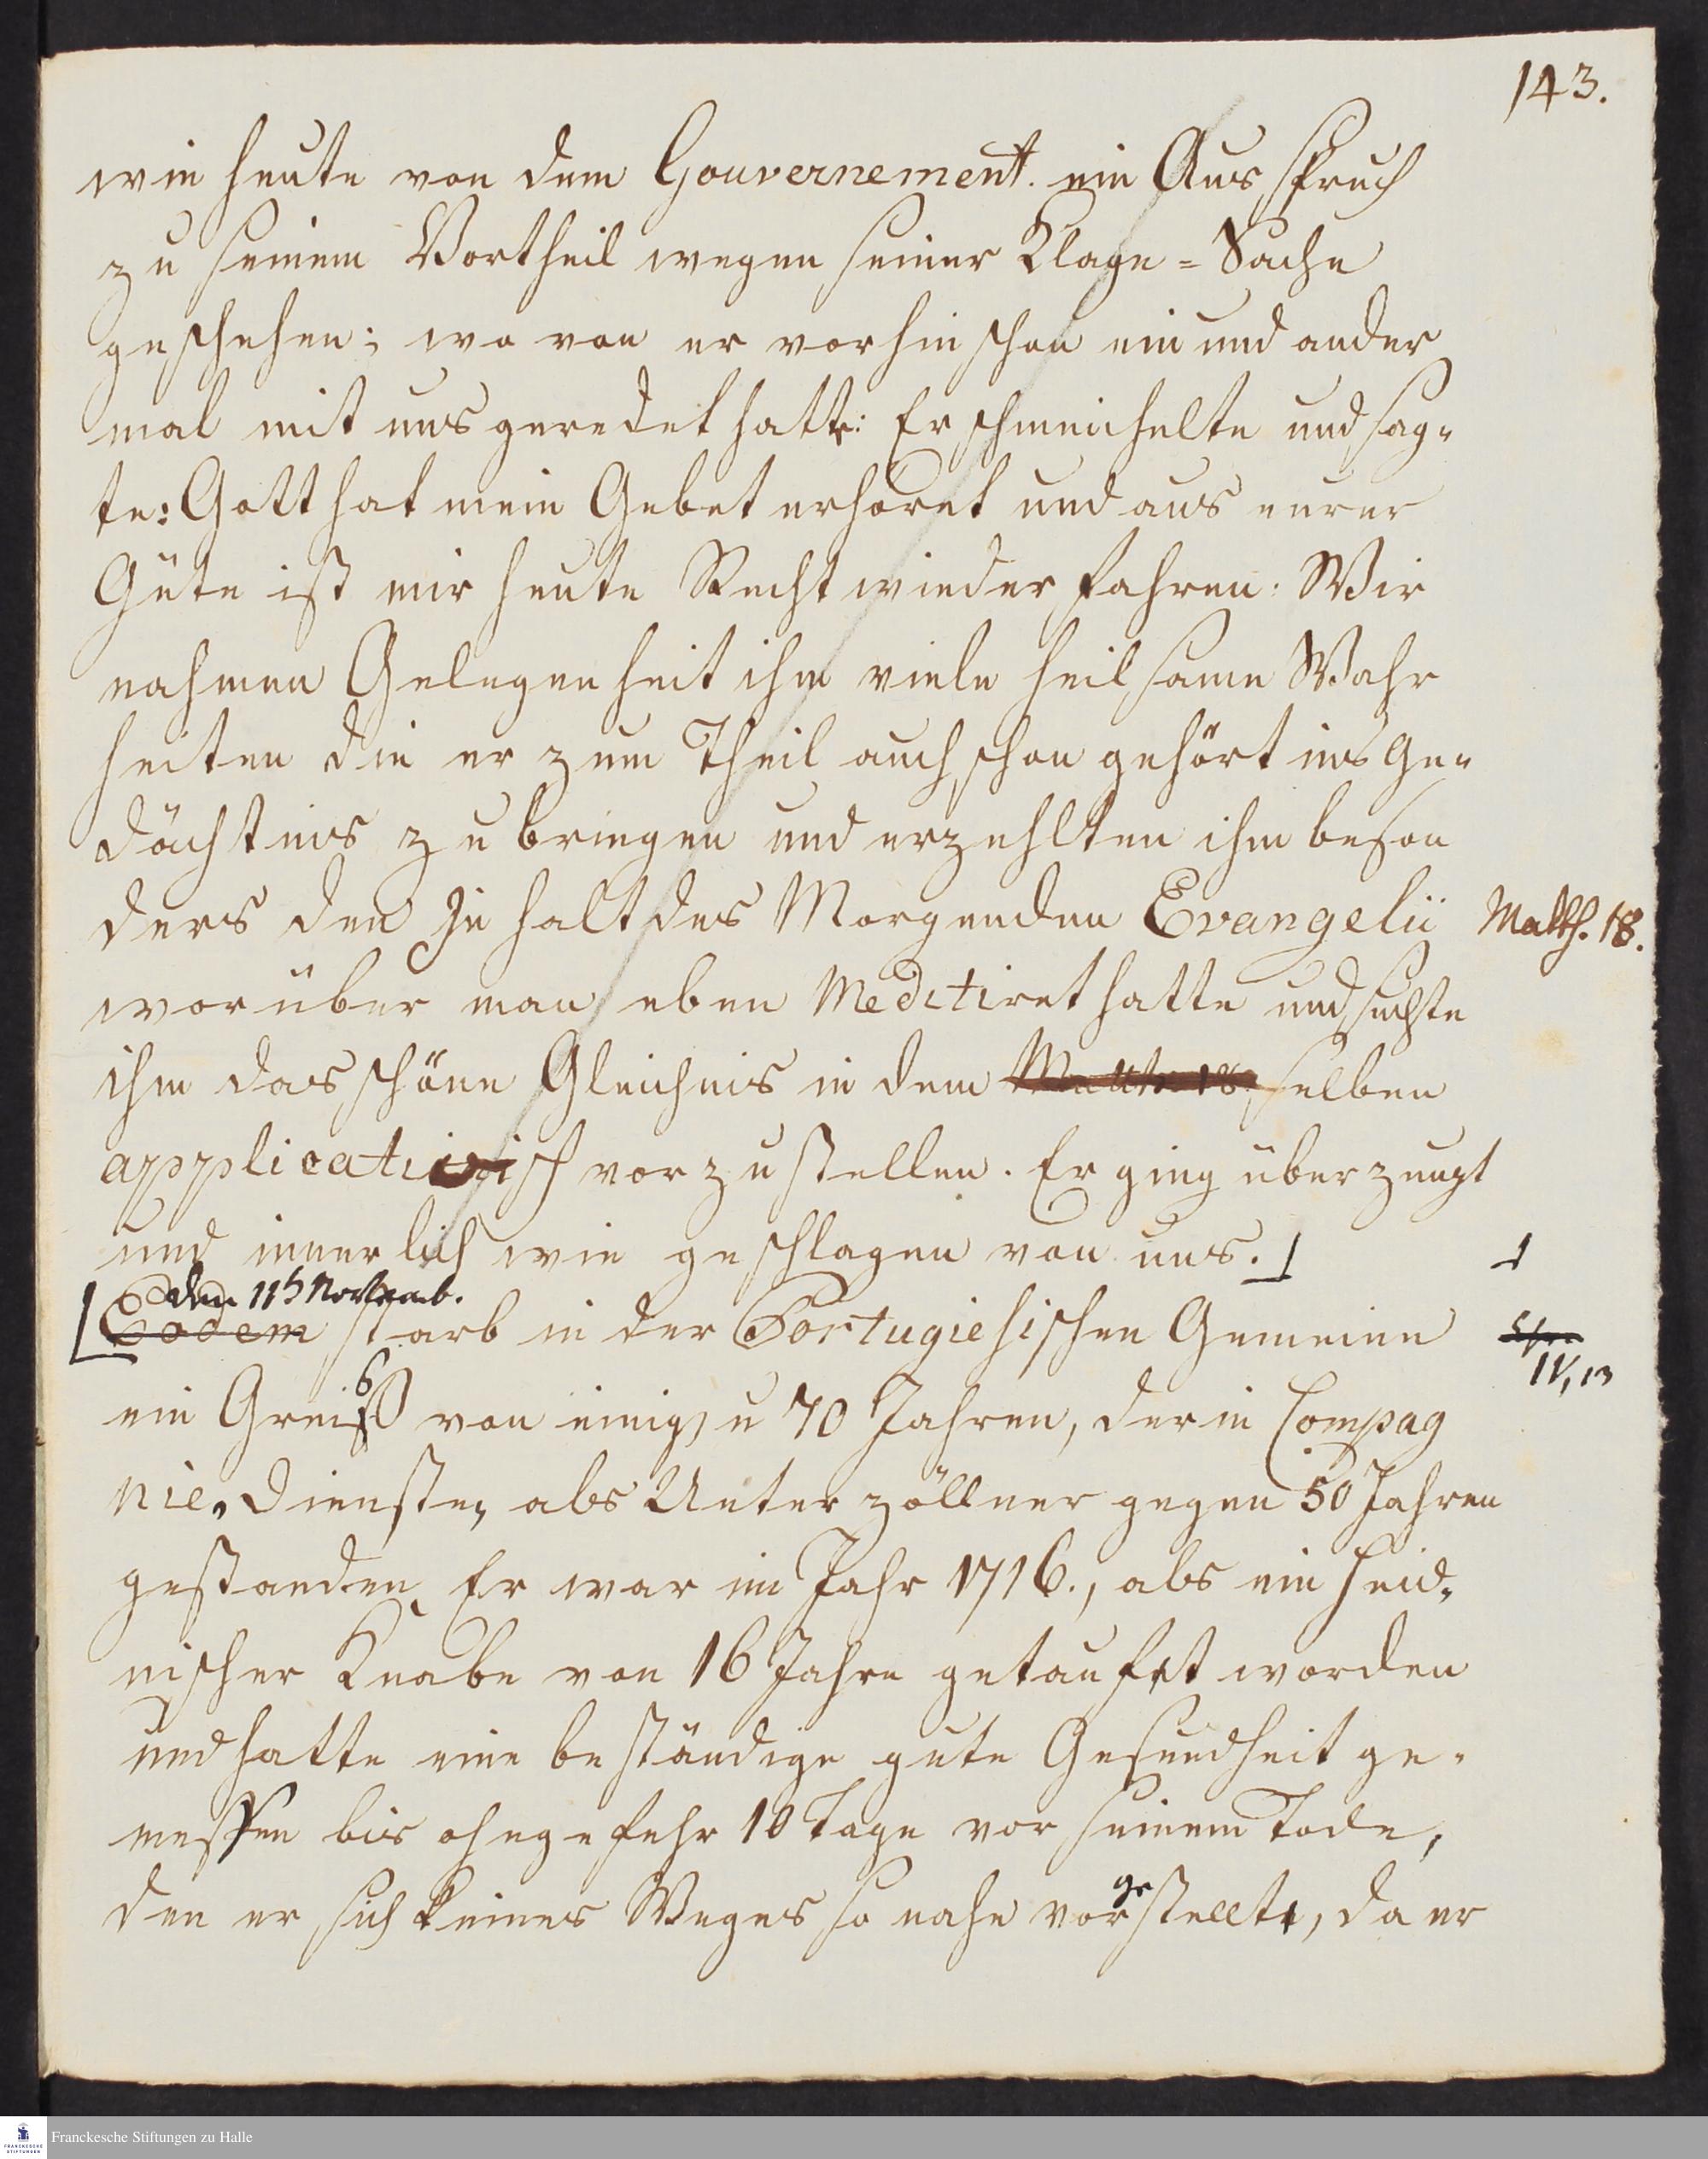 143.
wie heute von dem Gouvernement. ein Ausspruch
zu seinem Vortheil wegen seiner Klage=Sache
geschehen; wo von er vorhin schon ein und ander
mal mit uns geredet hatte: Er schmeichelte und sag=
te: Gott hat mein Gebet erhöret und aus eurer
Güte ist mir heute Recht wiederfahren: Wir
nahmen Gelegenheit ihm viele heilsame Wahr
heiten die er zum Theil auch schon gehört ins Ge=
dächtnis zu bringen und erzehlten ihm beson
ders den Inhalt des Morgenden Evangelii Matth. 18.
worüber man eben Meditiret hatte und suchte
ihm das schöne Gleichnis in dem Matth 18. selben
applicativisch vorzustellen. Er ging überzeugt
und innerlich wie geschlagen von uns.
den 11ten Novemb.
Eodem starb in der Portugiesischen Gemeine
IV, 13
ein Greiß von einig u 70 Jahren, der in Compag
nie=Diensten als Unterzöllner gegen 50 Jahren
gestanden. Er war im Jahr 1716., als ein heid=
nischer Knabe von 16 Jahre getaufet worden
und hatte eine beständige gute Gesundheit ge=
nessen bis ohngefehr 10 Tage vor seinem Tode,
den er sich keines Weges so nahe vorgestellt, da er
Franckesche Stiftungen zu Halle